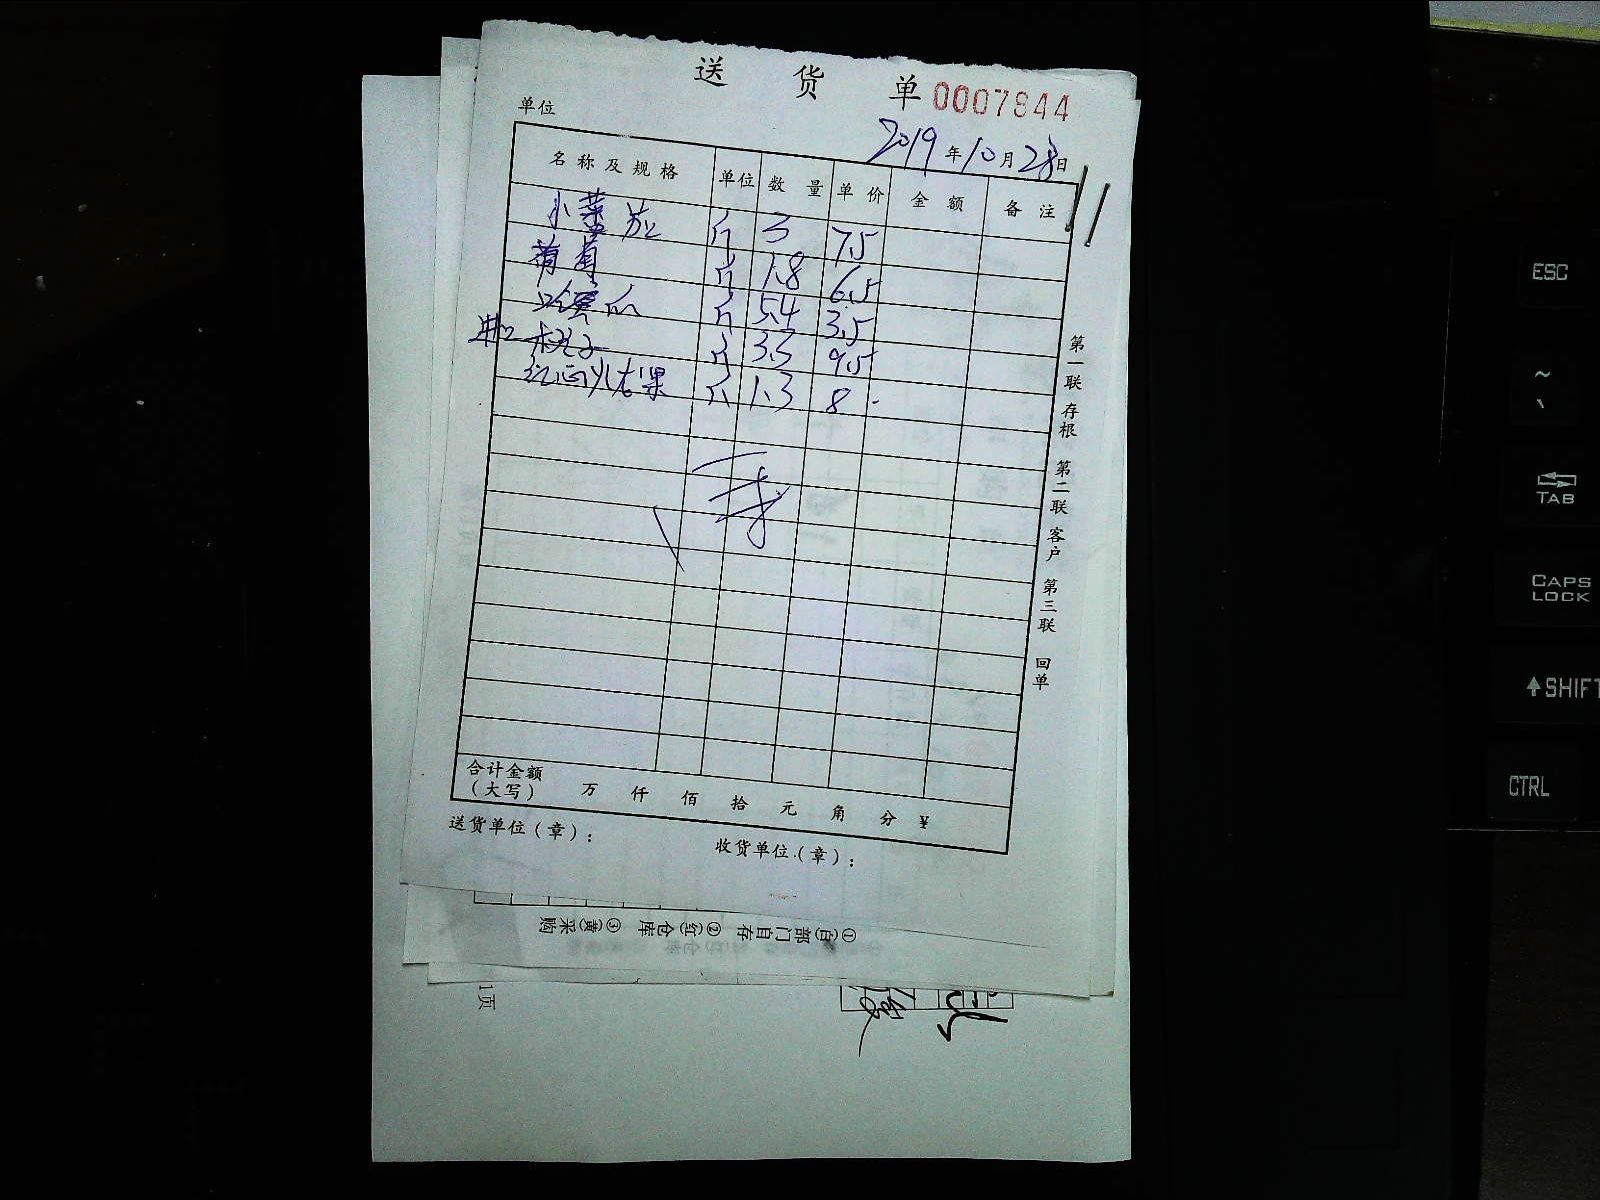 送货单 0007844
单位
2019年10月28日
名称及规格 单位 数量 单价 金额 备注
小番茄 斤 3 7.5
葡萄 斤 1.8 6.5
哈蜜瓜 斤 5.4 3.5
进口 橙子 斤 3.3 9.5
红心火龙果 斤 1.3 8.
第一联 存根 第二联 客户 第三联 回单
合计金额
(大写) 万 仟 佰 拾 元 角 分 ¥
送货单位(章):
收货单位(章):
①(白)部门自存 ②(红)仓库 ③(黄)采购
1页
ESC
~
、
TAB
CAPS
LOCK
SHIFT
CTRL